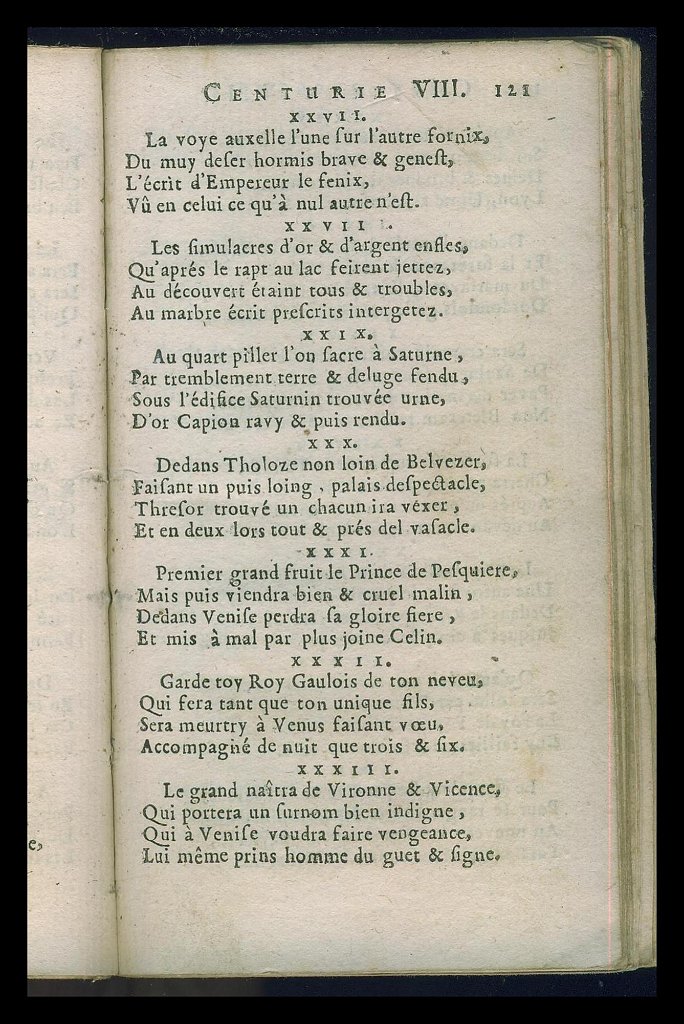 CENTURIE VIII. 121
XXVII.
La voye auxelle l'une ſur l'autre fornix,
Du muy deſer hormis brave & geneſt,
L'écrit d'Empereur le fenix,
Vû en celui ce qu'à nul autre n'eſt.
XXVIII.
Les ſimulacres d'or & d'argent enfles,
Qu'aprés le rapt au lac feirent jettez,
Au découvert étaint tous & troubles,
Au marbre écrit preſcrits intergetez.
XXIX.
Au quart piller l'on ſacre à Saturne,
Par tremblement terre & deluge fendu,
Sous l'édifice Saturnin trouvée urne,
D'or Capion ravy & puis rendu.
XXX.
Dedans Tholoze non loin de Belvezer,
Faiſant un puis loing, palais deſpectacle,
Threſor trouvé un chacun ira vexer,
Et en deux lors tout & prés del vaſacle.
XXXI.
Premier grand fruit le Prince de Peſquiere,
Mais puis viendra bien & cruel malin,
Dedans Veniſe perdra ſa gloire fiere,
Et mis à mal par plus joine Celin.
XXXII.
Garde toy Roy Gaulois de ton neveu,
Qui fera tant que ton unique fils,
Sera meurtry à Venus faiſant vœu,
Accompagné de nuit que trois & ſix.
XXXIII.
Le grand naîtra de Vironne & Vicence,
Qui portera un ſurnom bien indigne,
Qui à Veniſe voudra faire vengeance,
Lui même prins homme du guet & ſigne.
e,